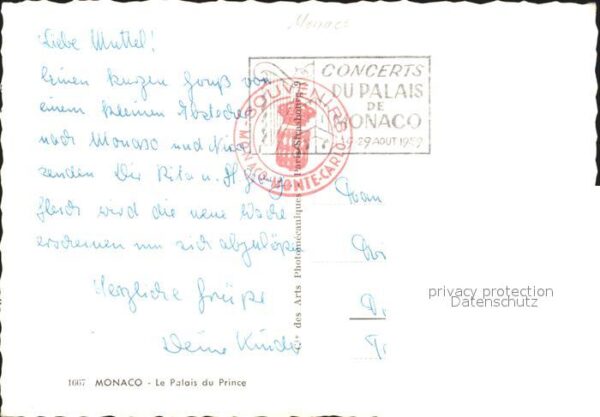 Monaco
Liebe Muttel!
Einen kurzen Gruß von
einem kleinen
nach Monaco und Nizza
senden Dir Rita u.
Gleich wird die neue Wache
erscheinen um sich abzulösen
Herzliche Grüße
Deine Kinder
CONCERTS
DU PALAIS
DE
MONACO
29 AOUT 1959
SOUVENIRS
MONACO MONTE-CARLO
Cie des Arts Photomécaniques Paris-Strasbourg
privacy protection
Datenschutz
1667 MONACO - Le Palais du Prince